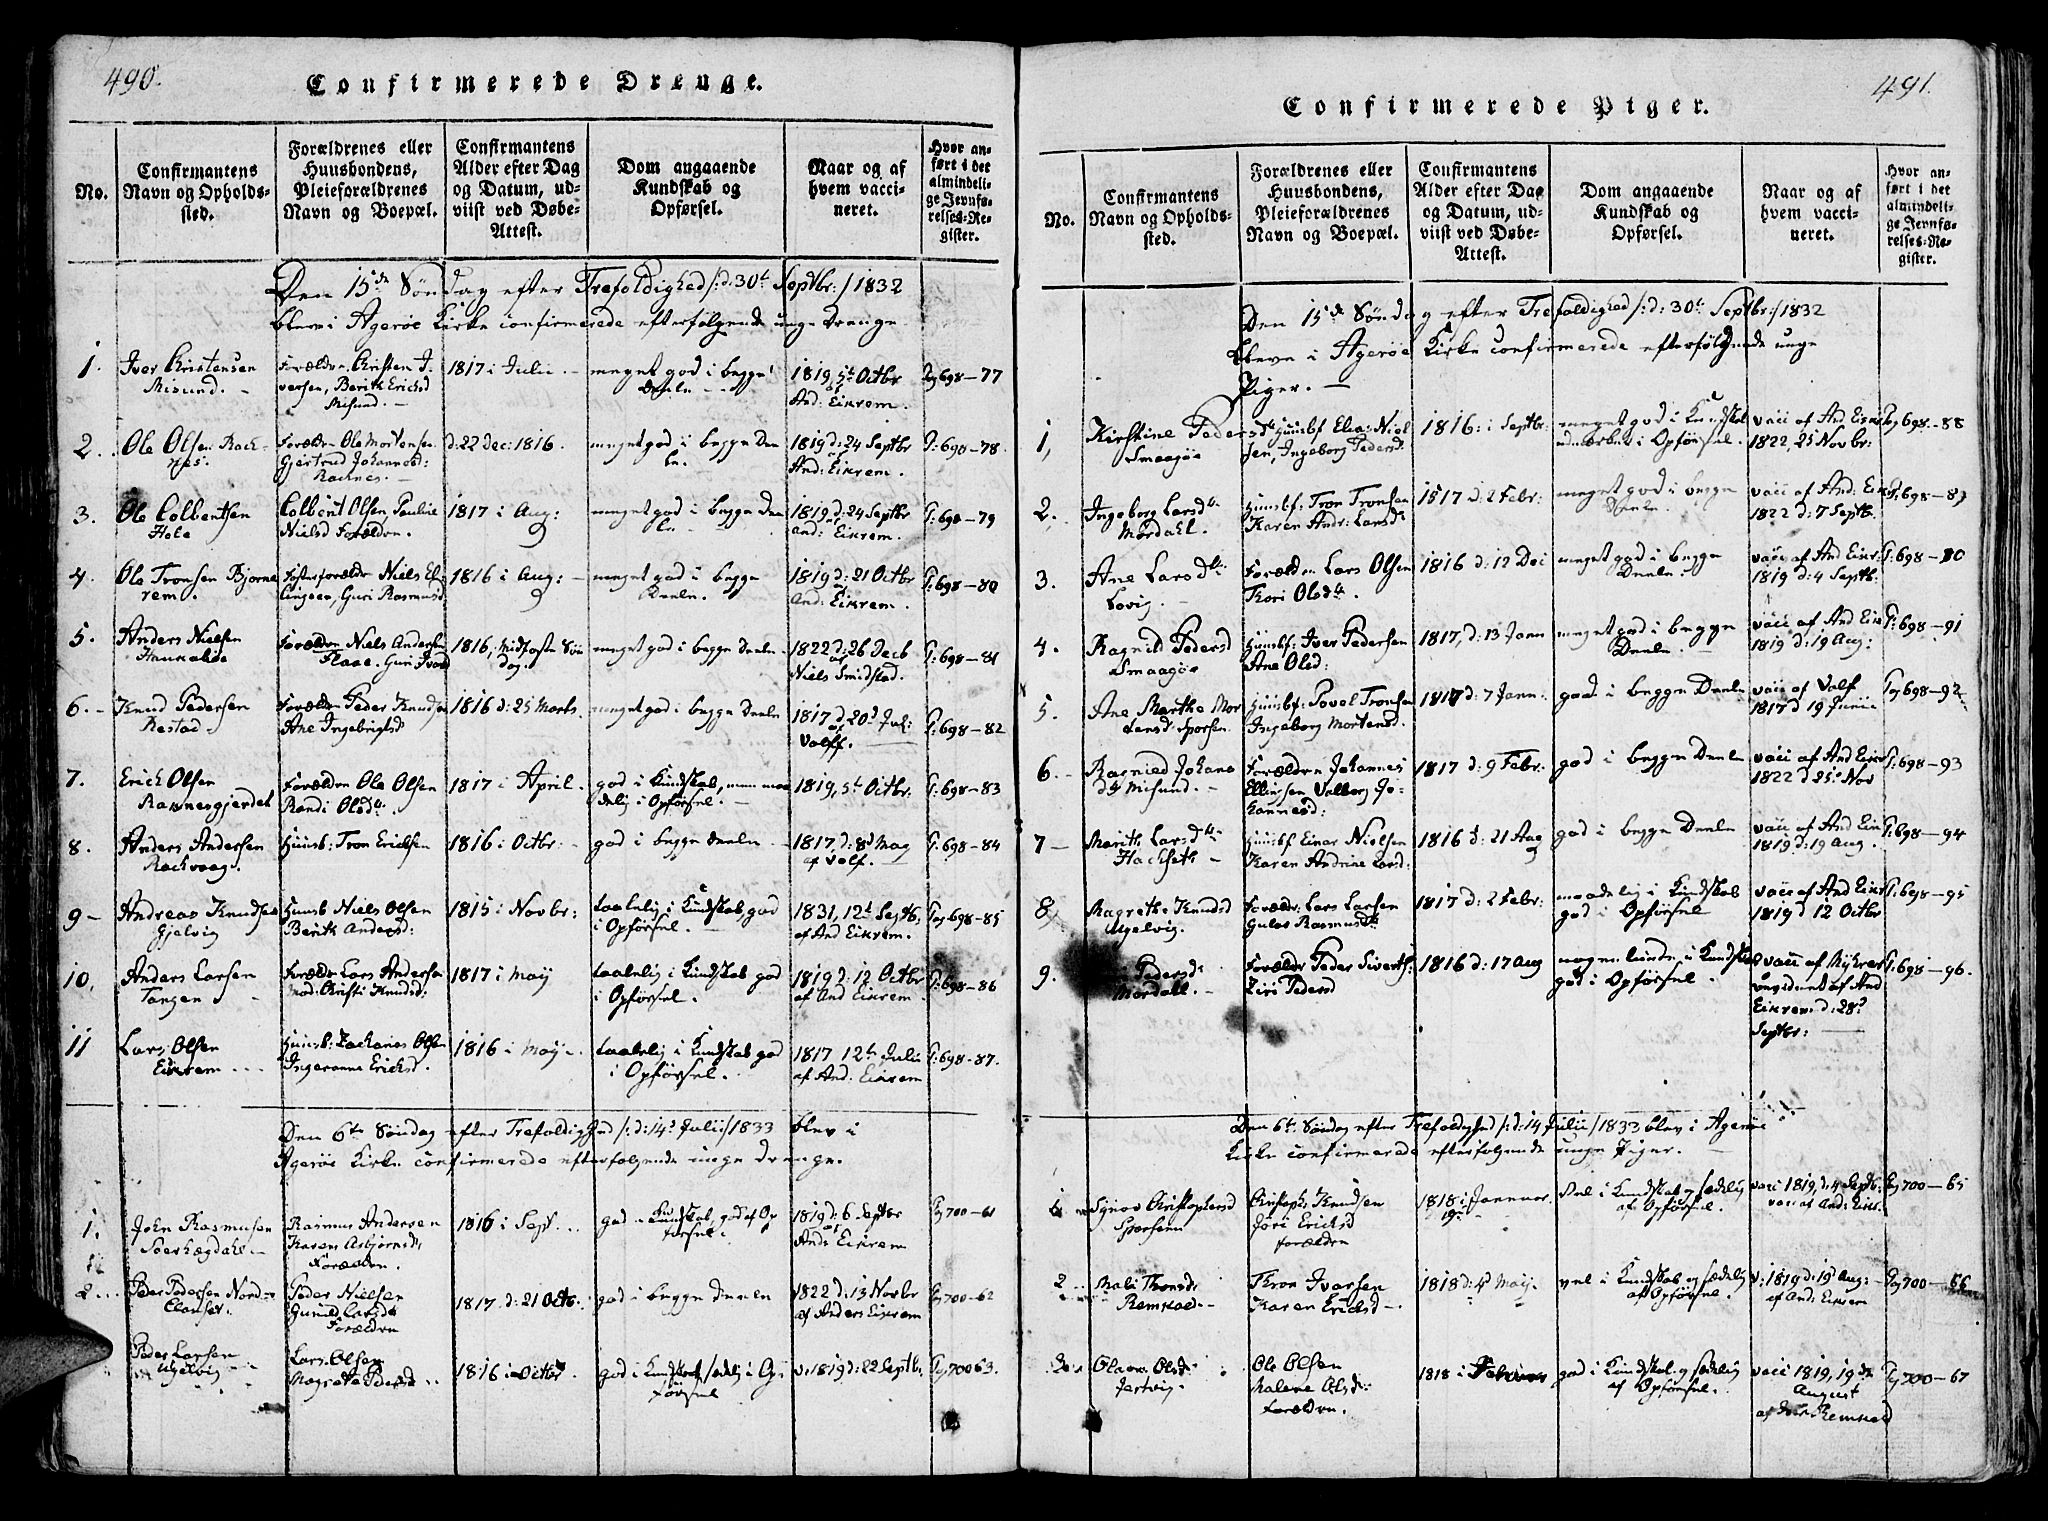 490.
Confirmerede Drenge.
No.
Confirmantens Navn og Opholdssted.
Forældrenes eller Huusbondens, Pleieforældrenes Navn og Boepæl.
Confirmantens Alder efter Dag og Datum, udviist ved Døbe-Attest.
Dom angaaende Kundskab og Opførsel.
Naar og af hvem vaccineret.
Hvor anført i det almindelige Jevnførelses-Register.
Den 15de Søndag efter Trefoldighed /:d: 30te Septbr:/ 1832
bleve i Agerøe Kirke confirmerede efterfølgende unge Drenge
1. Iver Christensen Misund. Forældre Christen Iversen, Berith Ericksd Misund. 1817 i Julii meget god i begge Deele 1819, 5te Octbr And: Eikrem. Pag 698-77
2. Ole Olsen Racknes. Forældre Ole Mortensen Gjertrud Johannesd: Racknes. d: 22 Dec: 1816. meget god i begge Deele. 1819 d: 24 Septbr And: Eikrem. P: 698-78
3. Ole Colbentsen Hole Colbent Olsen, Nielsd Forældre. 1817 i Aug: meget god i begge Deele 1819 d: 24 Septbr And: Eikrem. P: 698-79
4. Ole Tronsen Bjørnerem. Fosterforældre Niels Guri Rasmusd 1816 i Aug: meget god i begge Deele. 1819 d: 21 Octbr And: Eikrem. P: 698-80
5. Anders Nielsen Forældre Niels Andersen Guri 1816, Midfaste Søndag. meget god i begge Deele 1822 d: 26 Decb Niels Smidstad. P: 698-81
6. Knud Pedersen Restad Forældre Peder Knudsen Ane Ingebrigtsd 1816 d: 25 Marts. meget god i begge Deele 1817 d: 20d Jul: Volff. P: 698-82
7. Erich Olsen Racknesgjerdet Forældre Ole Olsen Randi Olsd. 1817 i April. god i Kundskab, i Opførsel. 1819, 5te Octbr: P: 698-83
8. Anders Andersen Rackvaag. Huusb: Tron Ericksen 1816 i Octbr: god i begge Deele 1817 d: 8d May af Volf. P: 698-84
9 Andreas Knudsen Gjelvig Huusb Niels Olsen Berith Andersd: 1815 i Novbr: taalelig i Kundskab, god i Opførsel. 1831, 12te Septb. af And Eikrem. Pag 698-85
10. Anders Larsen Tangen Forældre Lars Andersen Mod: Christi Knudsd: 1817 i May taalelig i Kundskab god i Opførsel. 1819 d: 12 Octbr af And Eikrem. P: 698-86
11 Lars Olsen Eikrem Huusb: Zacharias Olsen Ingeranna Ericksd. 1816 i May taalelig i Kundskab god i Opførsel. 1817 12te Julii af And: Eikrem P: 698-87.
Den 6te Søndag efter Trefoldighed /:d: 14d Julii/ 1833 blev i
Agerøe Kirke confirmerede efterfølgende unge Drenge.
1. John Rasmusen Rasmus Andersen Karen Asbjørnsd. Forældre. 1816 i Sept. god i Kundskab, god af Opførsel. 1819 d: 6 Septbr And: Eikrem Pag 700-61
2 Peder Pedersen Nord- Peder Nielsen Gunild Larsd Forældre 1817. d: 21 Octb. god i begge Deele 1822 d: 13 Novbr af Anders Eikrem Pag 700-62
Peder Larsen Ugelvig Lars Olsen Magrete Pedersd 1816 i Octbr god i Kundskab, sædelig i Opførsel v: 1819 d: 22 Septb. Pag 700 63.
491.
Confirmerede Piger.
No.
Confirmantens Navn og Opholdssted.
Forældrenes eller Huusbondens, Pleieforældrenes Navn og Boepæl.
Confirmantens Alder efter Dag og Datum, udviist ved Døbe-Attest.
Dom angaaende Kundskab og Opførsel.
Naar og af hvem vaccineret.
Hvor anført i det almindelige Jevnførelses-Register.
Den 15de Søndag efter Trefoldighed /:d: 30te Septbr:/ 1832
bleve i Agerøe Kirke confirmerede efterfølgende unge
Piger.
1, Kirstine Pedersd Smaagøe Huusbf Elias Nielsen, Ingeborg Pedersd: 1816: i Septbr: meget god i Kundskab i Opførsel. vacc af And Eikr 1822, 25 Novbr: Pag 698-88
2. Ingeborg Larsd. Mordahl. Huusbf: Tron Tronsen Karen Andr: Larsd 1817 d: 2 Febr: meget god i begge Deele. vacc af And: Eikr 1822 d: 7 Septb. P. 698-89
3. Ane Larsd. Lovig. Forældre Lars Olsen Kari Olsd. 1816 d: 12 Dec meget god i begge Deele. vacc af And Eikr: 1819 d: 4 Septb: P: 698-90
4. Ragnild Pedersd Smaagøe Huusbf: Iver Pedersen Ane Olsd: 1817, d: 13 Jann meget god i begge Deele. vacc af And Eikr 1819 d: 19 Aug: P: 698-91
5. Ane Marthe Mortensd: Sporsem Huusbf: Povel Tronsen Ingeborg Mortensd. 1817 d: 7 Jann: god i begge Deele vacc af Volf 1817 d 19 Junii Pag 698-92
6. Ragnied Johansd Misund. Forældre Johannes Ellingsen Valborg Johannesd: 1817 d: 9 Febr: god i begge Deele vacc af And Eikr 1822 d 25 Nov P: 698-93
7 Marith Larsd. Hachseth Huusbf Einar Nielsen Karen Andrine Larsd: 1816 d: 21 Aug god i begge Deele vacc af And Eik 1819 d: 19 Aug. P: 698-94
8, Magrethe Knudsd Ugelvig. Forældr: Lars Larsen Guloe Rasmusd. 1817 d: 2 Febr: maadelig i Kundskab god i Opførsel vacc af And Eikr 1819 d 12 Octbr P: 698-95
9. Pedersd. Mordahl. Forældr Peder Sivertsen Siri Pedersd 1816 d: 17 Aug nogenlunde i Kundskab god i Opførsel. vacc af af And Eikrem d: 28d Septbr: P: 698-96.
Den 6te Søndag efter Trefoldighed /:d: 14 Julii/ 1833 blev i Agerøe
Kirke confirmerede efterfølgende unge Piger.
1. Synøv Christophersd Sporsem Christoph: Knudsen Jøri Ericksd forældre 1818 i Januar. vel i Kundskab og sædelig af Opførsel. vacc 1819, d: 4 Septb: vacc af And: Eikr. Pag 700-65
2 Mali Thronsd: Remskae. Thron Iversen Karen Ericksd 1818 d: 4d May. vel i Kundskab og sædelig af Opførsel. v: 1819 d: 19d Aug: af And: Eikrem Pag 700-66
3 Olava Olsd: Jertvig. Ole Olsen Malene Olsd: Forældre. 1818 i Februar god i Kundskab og sædelig af Opførsel. vacc 1819, 19de August af Remskae Pag 700-67